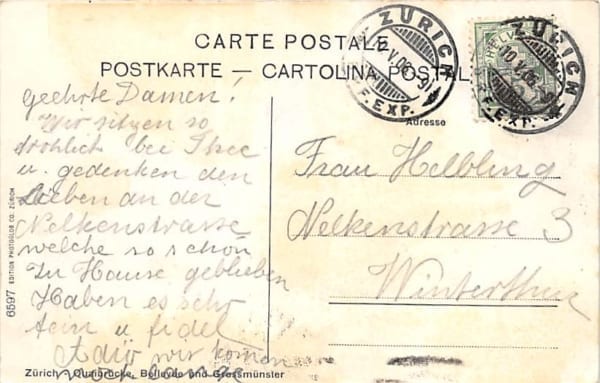 CARTE POSTALE
POSTKARTE — CARTOLINA POSTALE
ZÜRICH
10.V.06.-9
F.EXP.
HELVETIA
ZÜRICH
10.V.06.-9
F.EXP.
Adresse
Geehrte Damen!
Wir sitzen so
fröhlich bei Thee
u. gedenken den
Lieben an der
Nelkenstrasse
welche so schön
zu Hause geblieben
Haben es sehr
fein u fidel
Adio wir komen
Frau Helbling
Nelkenstrasse 3
Winterthur
6597 EDITION PHOTOGLOB CO. ZÜRICH
Zürich - Quaibrücke, Bellevue und Grossmünster